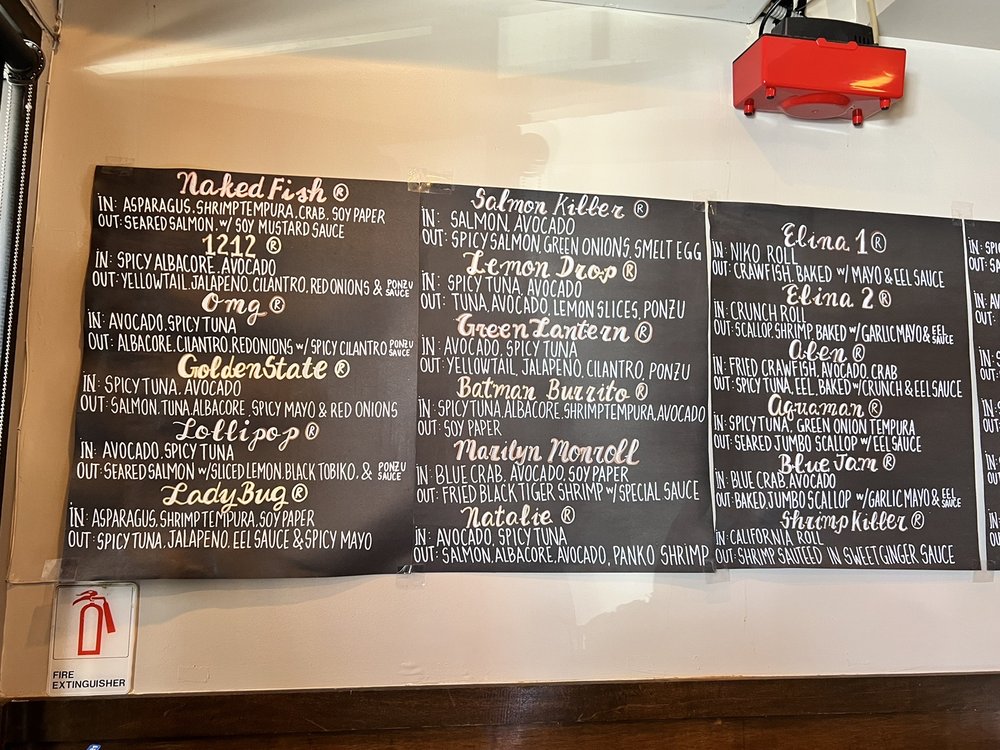 Naked Fish ®
IN: ASPARAGUS, SHRIMP TEMPURA, CRAB, SOY PAPER
OUT: SEARED SALMON, W/ SOY MUSTARD SAUCE
1212 ®
IN: SPICY ALBACORE, AVOCADO
OUT: YELLOWTAIL, JALAPENO, CILANTRO, RED ONIONS & PONZU SAUCE
Omg ®
IN: AVOCADO, SPICY TUNA
OUT: ALBACORE, CILANTRO, RED ONIONS W/ SPICY CILANTRO PONZU SAUCE
Golden State ®
IN: SPICY TUNA, AVOCADO
OUT: SALMON, TUNA, ALBACORE, SPICY MAYO & RED ONIONS
Lollipop ®
IN: AVOCADO, SPICY TUNA
OUT: SEARED SALMON W/ SLICED LEMON, BLACK TOBIKO, & PONZU SAUCE
Lady Bug ®
IN: ASPARAGUS, SHRIMP TEMPURA, SOY PAPER
OUT: SPICY TUNA, JALAPENO, EEL SAUCE & SPICY MAYO
Salmon Killer ®
IN: SALMON, AVOCADO
OUT: SPICY SALMON, GREEN ONIONS, SMELT EGG
Lemon Drop ®
IN: SPICY TUNA, AVOCADO
OUT: TUNA, AVOCADO, LEMON SLICES, PONZU
Green Lantern ®
IN: AVOCADO, SPICY TUNA
OUT: YELLOWTAIL, JALAPENO, CILANTRO, PONZU
Batman Burrito ®
IN: SPICY TUNA, ALBACORE, SHRIMP TEMPURA, AVOCADO
OUT: SOY PAPER
Marilyn Monroll
IN: BLUE CRAB, AVOCADO, SOY PAPER
OUT: FRIED BLACK TIGER SHRIMP W/ SPECIAL SAUCE
Natalie ®
IN: AVOCADO, SPICY TUNA
OUT: SALMON, ALBACORE, AVOCADO, PANKO SHRIMP
Elina 1 ®
IN: NIKO ROLL
OUT: CRAWFISH, BAKED W/ MAYO & EEL SAUCE
Elina 2 ®
IN: CRUNCH ROLL
OUT: SCALLOP, SHRIMP BAKED W/ GARLIC MAYO & EEL SAUCE
Aben ®
IN: FRIED CRAWFISH, AVOCADO, CRAB
OUT: SPICY TUNA, EEL, BAKED W/ CRUNCH & EEL SAUCE
Aquaman ®
IN: SPICY TUNA, GREEN ONION TEMPURA
OUT: SEARED JUMBO SCALLOP W/ EEL SAUCE
Blue Jam ®
IN: BLUE CRAB, AVOCADO
OUT: BAKED JUMBO SCALLOP W/ GARLIC MAYO & EEL SAUCE
Shrimp Killer ®
IN: CALIFORNIA ROLL
OUT: SHRIMP SAUTEED IN SWEET GINGER SAUCE
FIRE
EXTINGUISHER